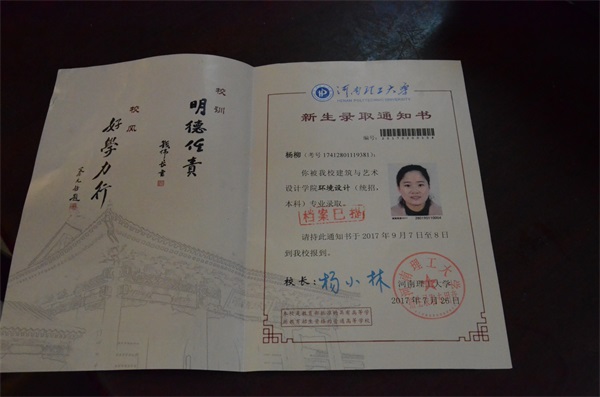 校训
明德任责
校风
好学力行
河南理工大学
HENAN POLYTECHNIC UNIVERSITY
新生录取通知书
编号:
杨柳(考号17412801119381):
你被我校建筑与艺术
设计学院环境设计(统招,
本科)专业录取。
档案已捐
请持此通知书于2017年9月7日至8日
到我校报到。
校长: 杨小林
河南理工大学
2017年7月26日